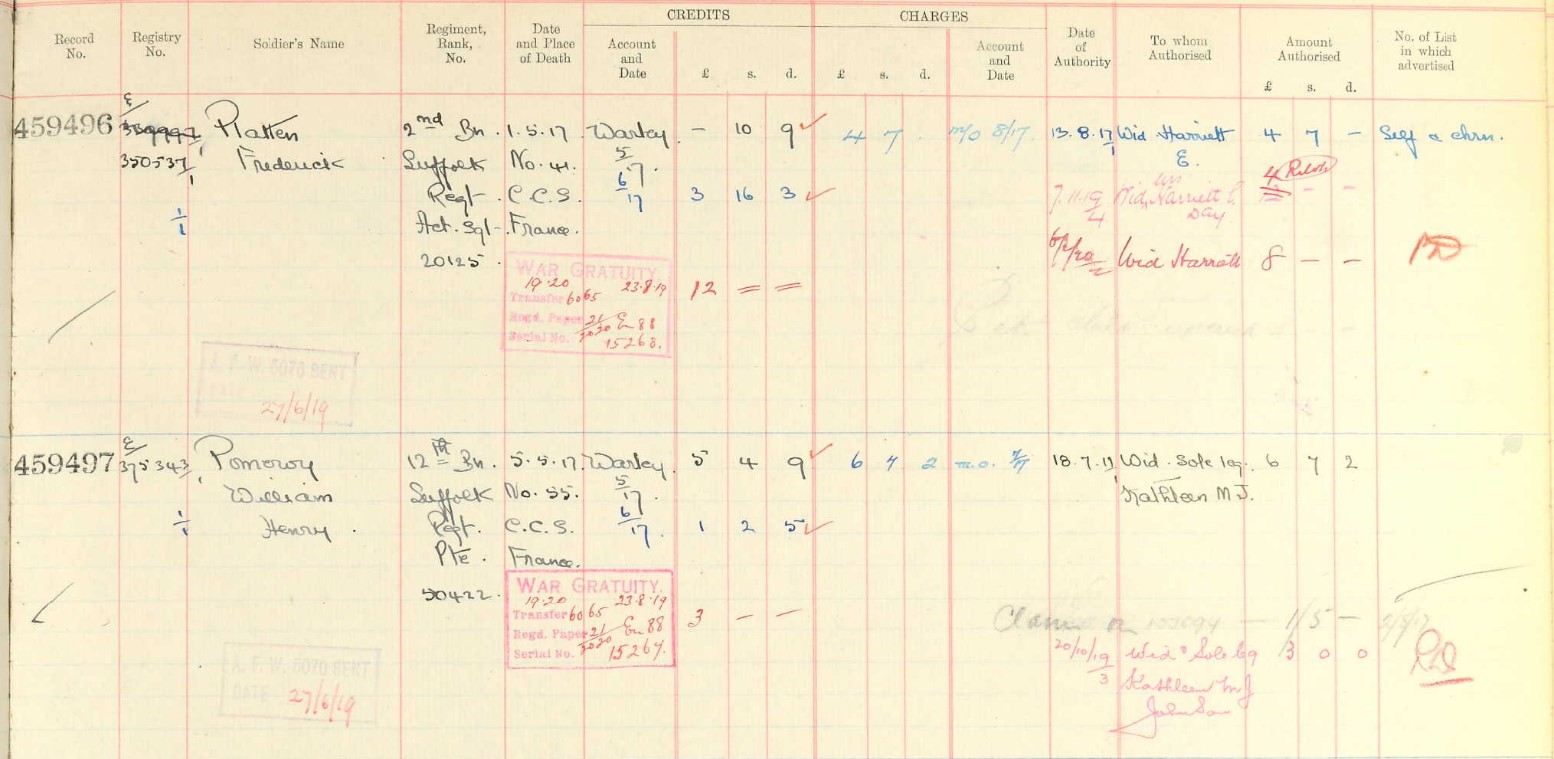 CREDITS CHARGES
Record No. Registry No. Soldier's Name Regiment, Rank, No. Date and Place of Death Account and Date £ s. d. £ s. d. Account and Date Date of Authority To whom Authorised Amount Authorised £ s. d. No. of List in which advertised
E/
459496 Platten 2nd Bn. 1.5.17. Warley - 10 9 4 7 m/o 8/17 13.8.17 Wid Harriett 4 7 - Self & chrn.
350537/1 Frederick Suffolk No. 41. 5/17. E.
Regt C.C.S. 6/17 3 16 3 7.11.19/4 Wid, Harriett E. 4 - -
1/1 Act. Sgt. France. Day
20125 Wid Harriett 8 - -
WAR GRATUITY.
19.20 23.8.19 12 = =
Transfer 6065
Regd. Paper 21/2020 En 88
Serial No. 15268.
A. F. W. 5070 SENT
DATE
27/6/19
E/
459497 375343/1 Pomeroy 12th Bn. 5.5.17. Warley. 5 4 9 6 7 2 m.o. 18.7.17 Wid. Sole leg. 6 7 2
William Suffolk No. 55. 5/17. Kathleen M J.
1/1 Henry. Regt. C.C.S. 6/17. 1 2 5
Pte. France.
50422.
WAR GRATUITY.
19.20 23.8.19
Transfer 6065 3 - -
Regd. Paper 21/2020 En 88
Serial No. 15267.
Claim 1/5 -
20/10/19/3 Wid & Sole leg 3 0 0
Kathleen M J
Johnson
A. F. W. 5070 SENT
DATE 27/6/19